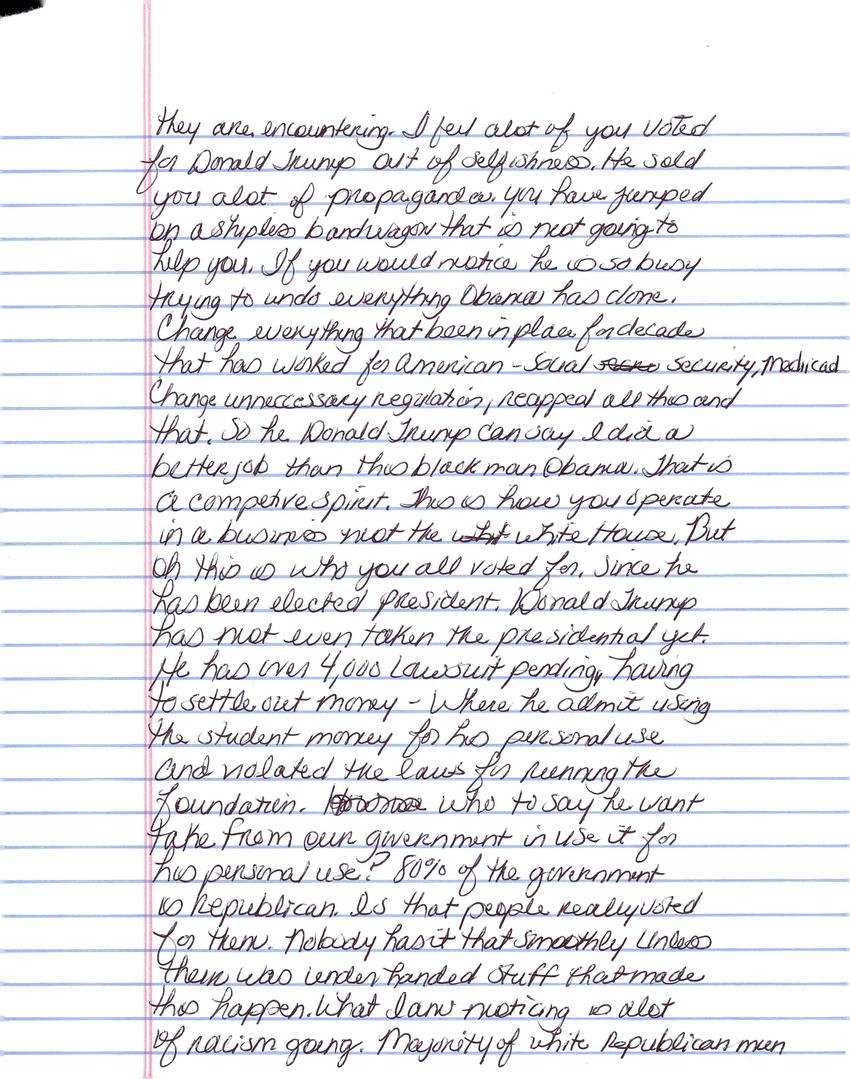 they are encountering. I feel alot of you voted
for Donald Trump out of selfishness. He sold
you alot of propaganda. you have jumped
on a bandwagon that is not going to
help you. If you would notice he is so busy
trying to undo everything Obama has done.
Change everything that been in place for decade
that has worked for American - Social security, Medicad
Change unneccessary regulation, reappeal all this and
that. So he Donald Trump can say I did a
better job than this black man Obama. That is
a competive spirit. This is how you operate
in a business not the white House. But
oh this is who you all voted for. Since he
has been elected president. Donald Trump
has not even taken the presidential yet.
He has over 4,000 Lawsuit pending, having
to settle out money - Where he admit using
the student money for his personal use
and violated the laws for running the
foundation. who to say he want
take from our government in use it for
his personal use? 80% of the government
is Republican. Is that people really voted
for them. Nobody has it that smoothly Unless
them was under handed stuff that made
this happen. What I am noticing is alot
of racism going. Majority of white Republican men